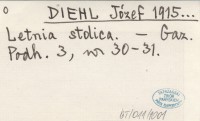 DIEHL Józef 1915...
Letnia stolica. — Gaz.
Podh. 3, nr 30-31.